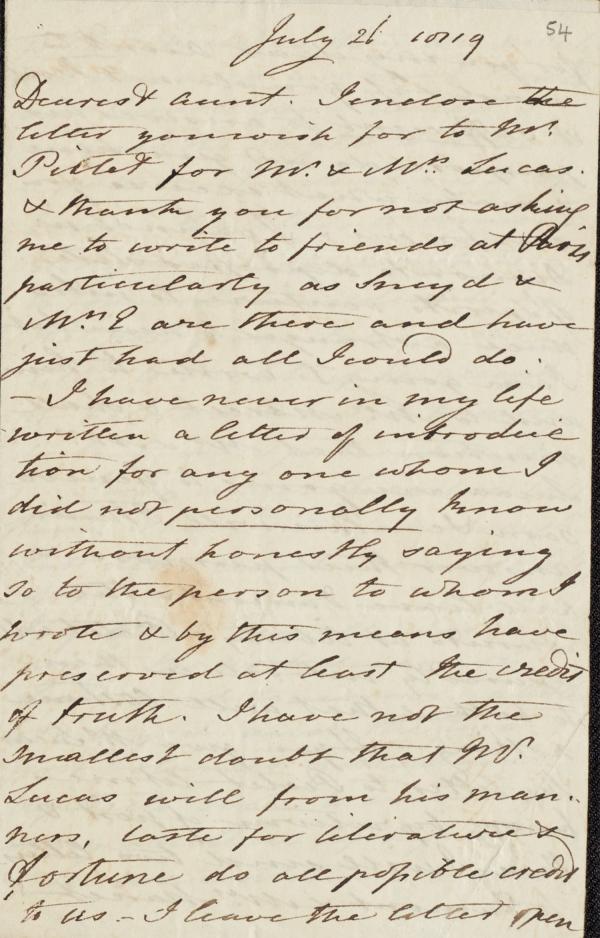 54
July 21 1819
Dearest Aunt. I enclose the
letter you wish for to Mr.
Pictet for Mr. & Mrs. Lucas.
& thank you for not asking
me to write to friends at Paris
particularly as Sneyd &
Mrs E are there and have
just had all I could do.
- I have never in my life
written a letter of introduc
tion for any one whom I
did not personally know
without honestly saying
so to the person to whom I
wrote & by this means have
preserved at least the credit
of truth. I have not the
smallest doubt that Mr.
Lucas will from his man-
ners, taste for literature &
fortune do all possible credit
to us - I leave the letter open